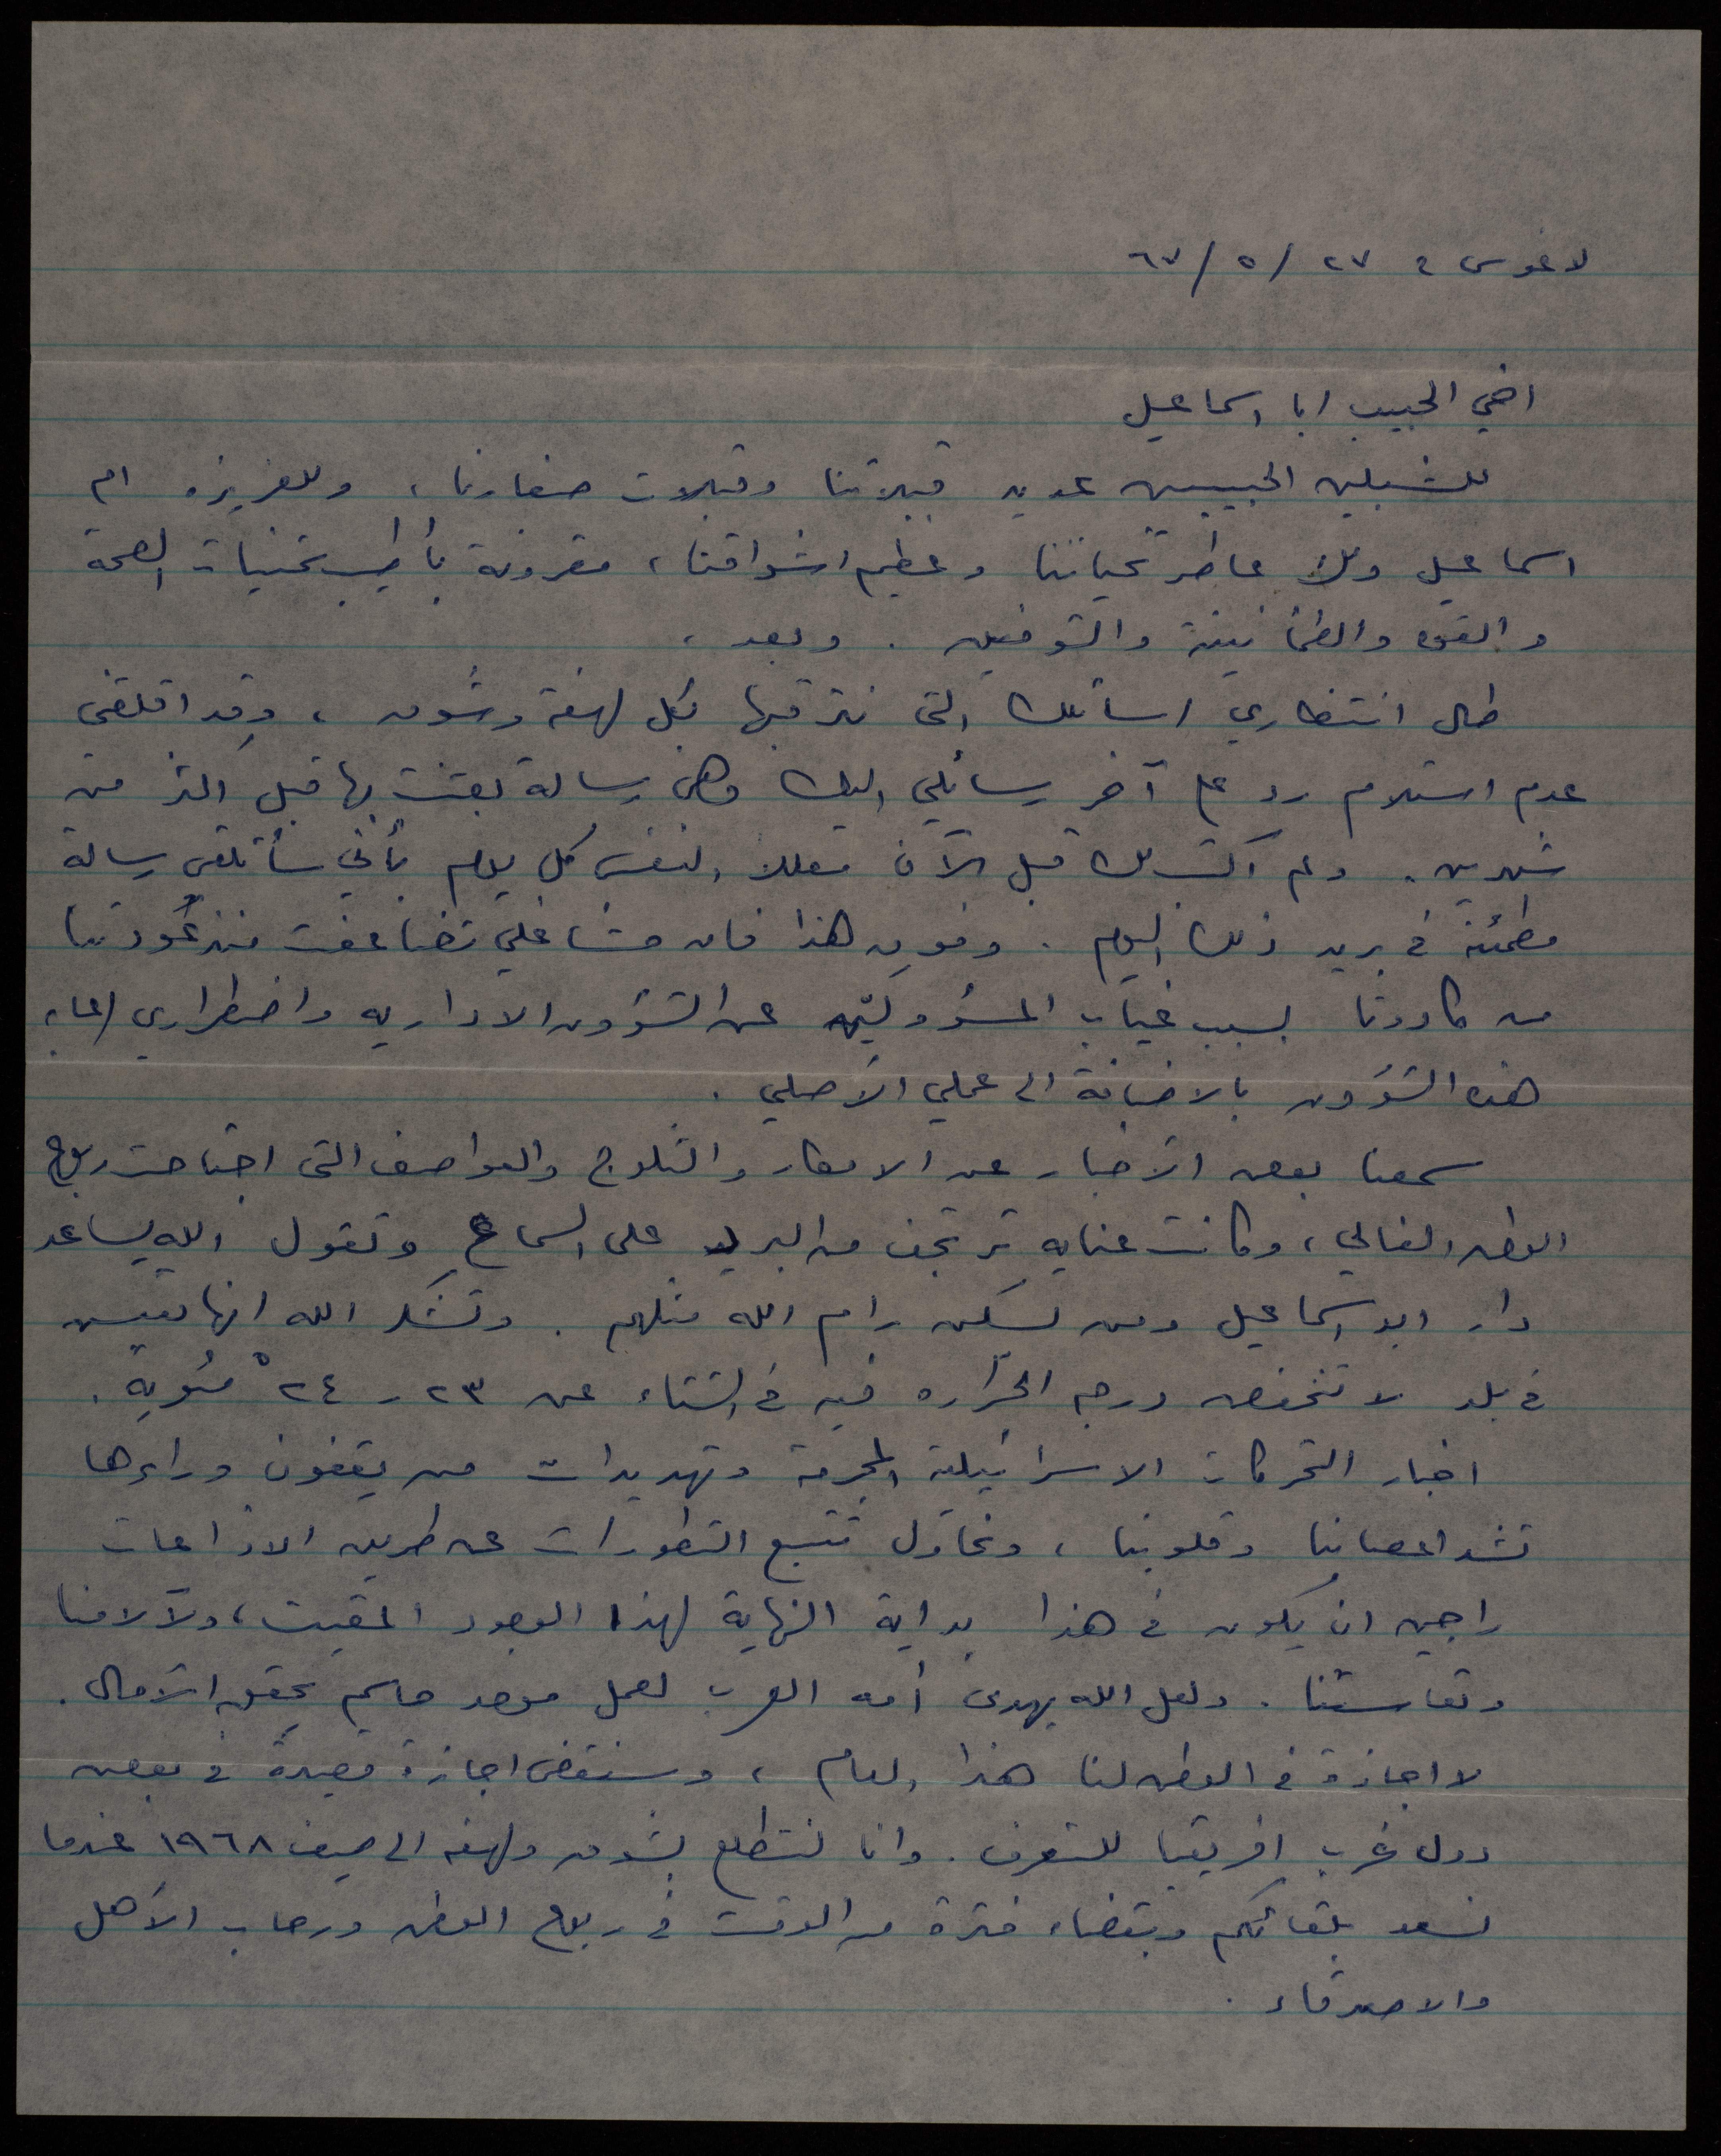 لاغوس في ٢٧ / ٥ / ٦٧
اخي الحبيب ابا اسماعيل
للشبلين الحبيبين عديد قبلاتنا وقبلات صغارنا، وللعزيزه ام
اسماعيل ولك عاطر تحياتنا وعظيم اشواقنا، مقرونة بأطيب تمنيات الصحة
والقوه والطمأنينة والتوفيق. وبعد،
طال انتظاري رسائلك التي نترقبها بكل لهفة وشوق، وقد اقلقني
عدم استلام رد على آخر رسائلي اليك وهي رسالة بعثت بها قبل اكثر من
شهرين. ولم اكتب لك قبل الآن معللا النفس كل يوم بأني سأتلقى رسالة
مطمئنة في بريد ذلك اليوم. وفوق هذا فان مشاغلي تضاعفت منذ عودتنا
من كادونا بسبب غياب المسؤولين عن الشؤون الاداريه واضطراري
هذه الشؤون بالاضافة الى عملي الأصلي.
سمعنا بعض الأخبار عن الامطار والثلوج والعواصف التي اجتاحت ربوع
الوطن الغالي، وكانت عنايه ترتجف من البرد على السماع وتقول الله يساعد
دار ابو اسماعيل ومن يسكن رام الله مثلهم. وتشكر الله انها تعيش
في بلد لا تنخفض درجه الحراره فيه في الشتاء عن ٢٣ - ٢٤° مئويه.
اخبار التحركات الاسرائيلية المجرمة وتهديدات من يقفون وراءها
تشد اعصابنا وقلوبنا، ونحاول تتبع التطورات عن طريق الاذاعات
راجين ان يكون في هذا بداية النهاية لهذا الوجود المقيت، ولآلامنا
وتعاستنا. ولعل الله يهدي أمه العرب لعمل موحد حاسم يحقق الآمال.
لا اجازة في الوطن لنا هذا العام، وسنقضي اجازة قصيرة في بعض
دول غرب افريقيا للتعرف. وانا لنتطلع بشوق ولهفه الى صيف ١٩٦٨ عندما
نسعد بلقائكم وبقضاء فترة من الوقت في ربوع الوطن ورحاب الأهل
والاصدقاء.